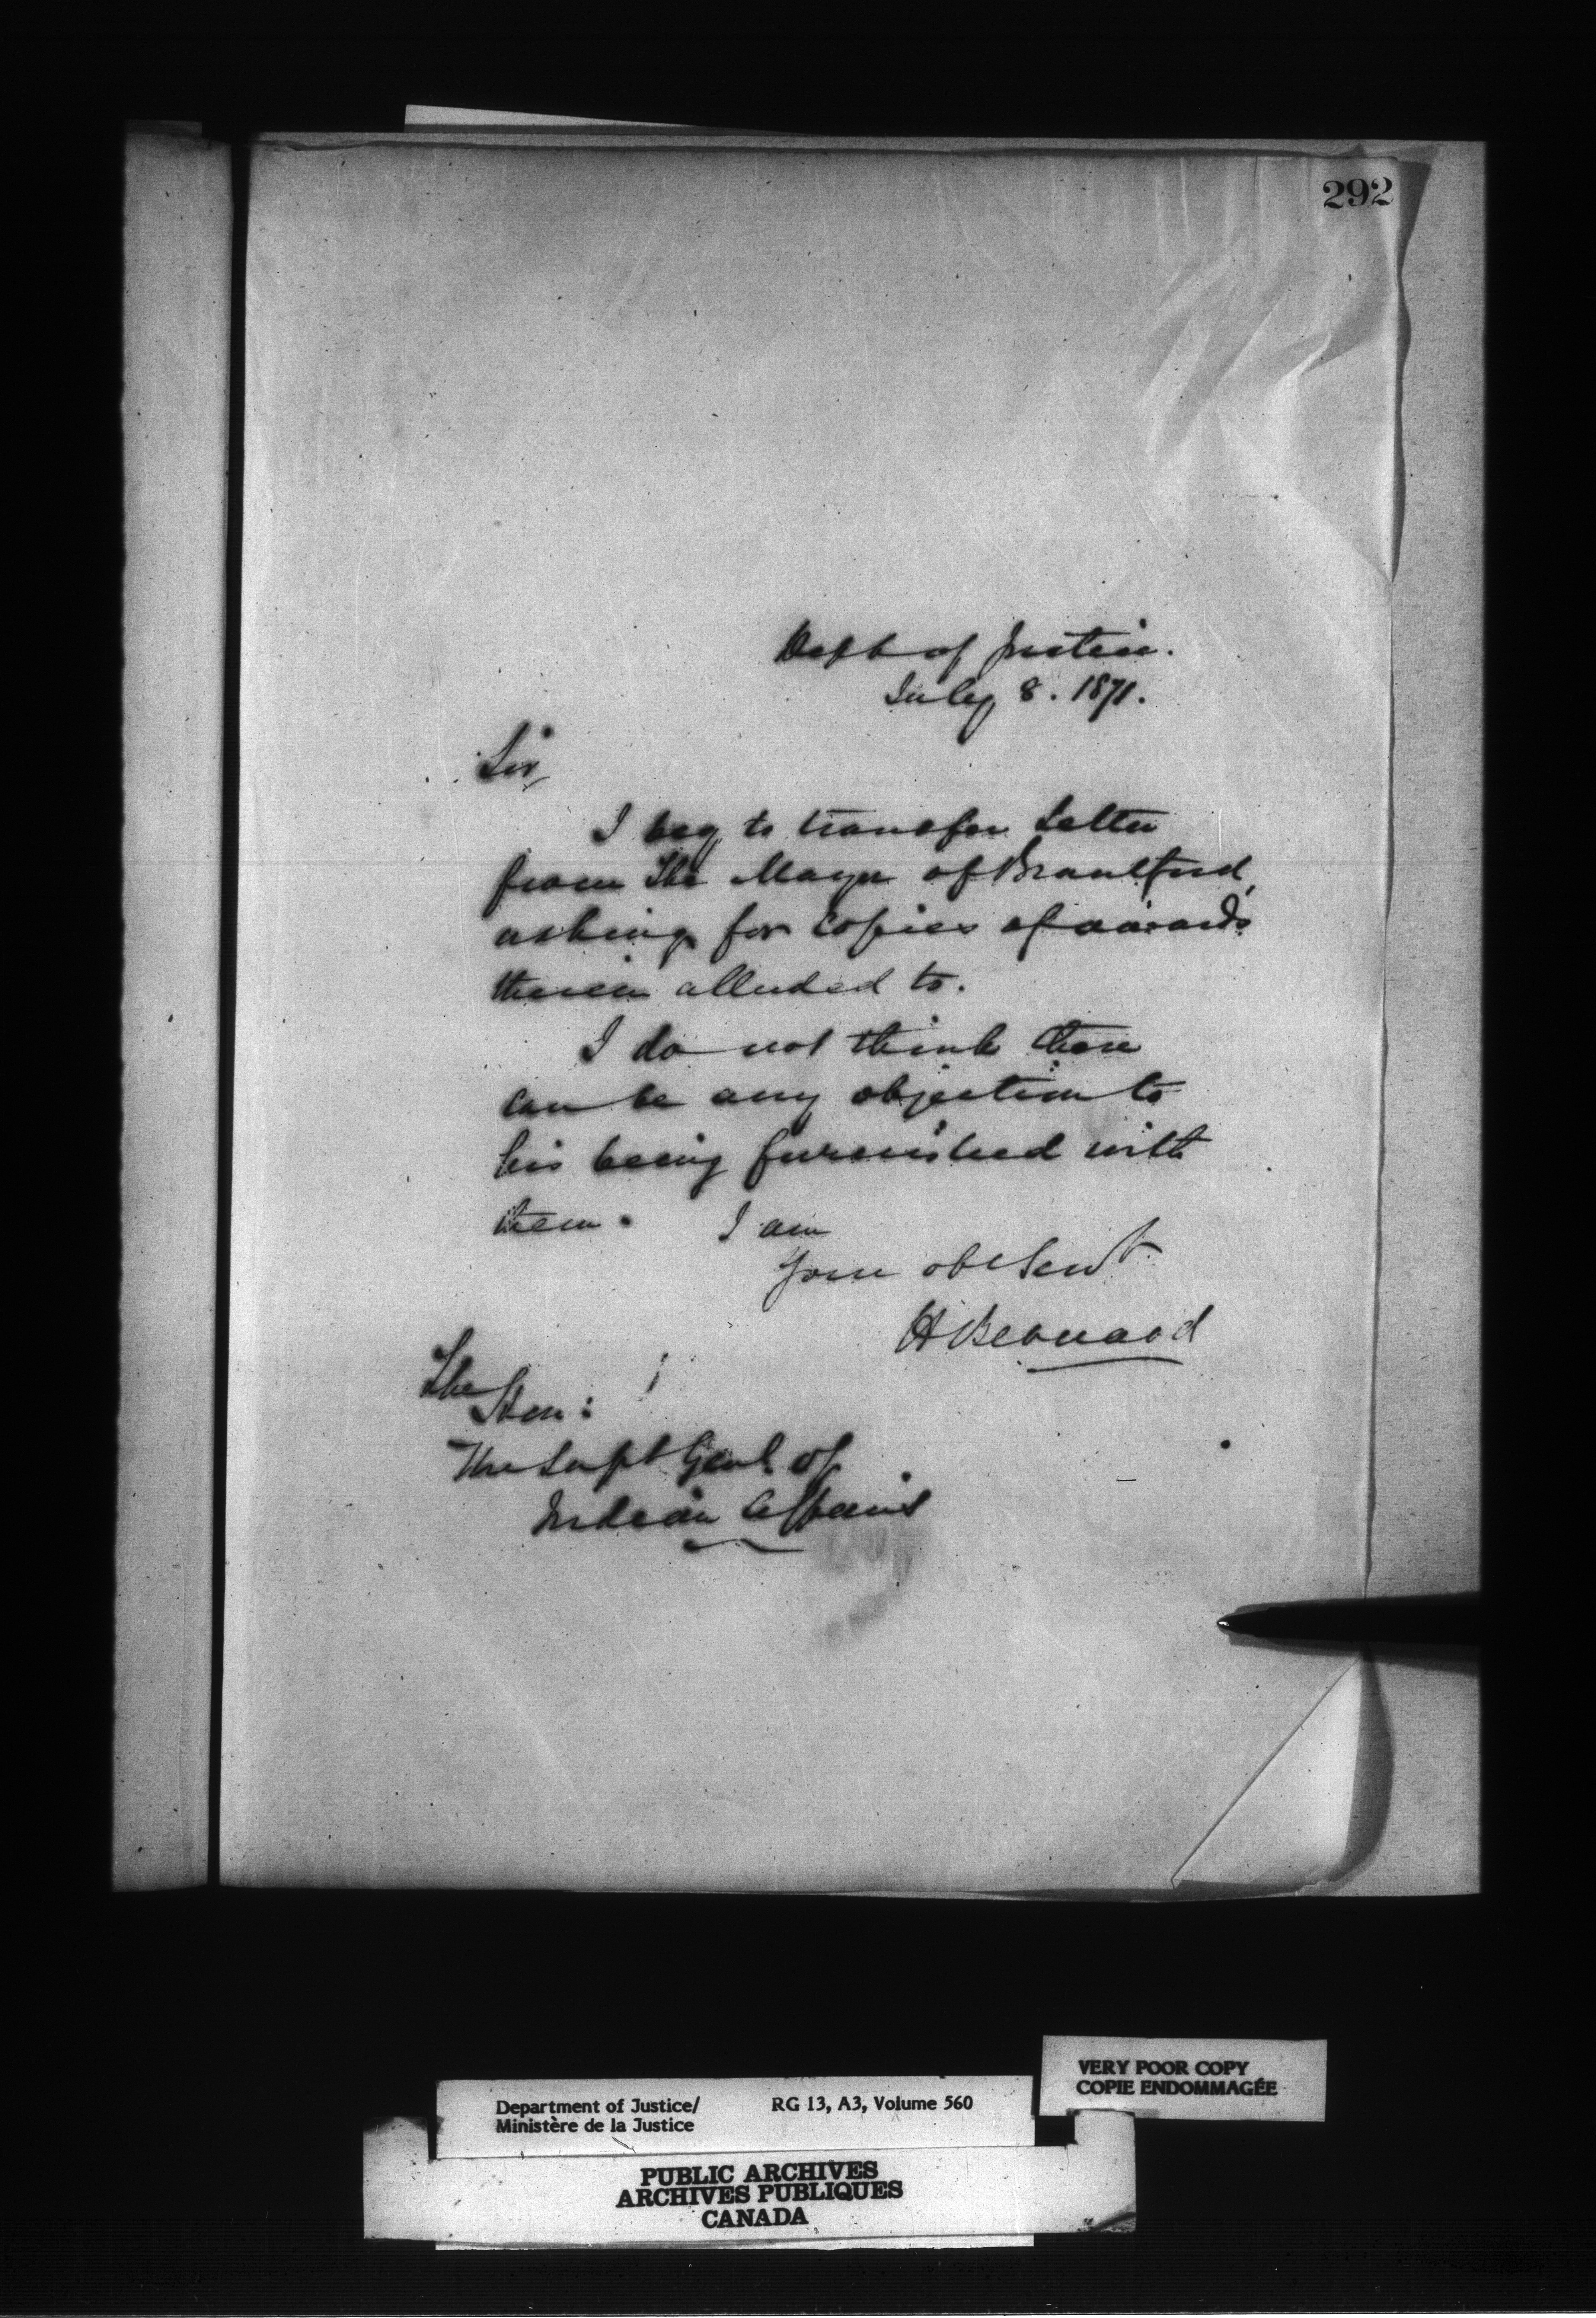 292
Dept of Justice.
July 8. 1871.
Sir,
I beg to transfer letter
from the Mayor of Brantford,
asking for copies of awards
therein alluded to.
I do not think there
can be any objection to
his being furnished with
them. I am
Your obt Servt
H Bernard
The
Hon:
The Supt Genl of
Indian Affairs
Department of Justice/ RG 13, A3, Volume 560
Ministère de la Justice
VERY POOR COPY
COPIE ENDOMMAGÉE
PUBLIC ARCHIVES
ARCHIVES PUBLIQUES
CANADA